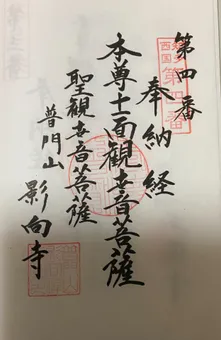 第四番
奉納経
本尊十一面観世音菩薩
聖観世音菩薩
普門山
影向寺